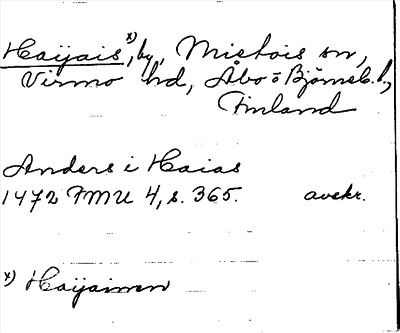 Haijais x), by, Mietois sn,
Virmo hd, Åbo o Björneb. l.,
Finland
Anders i Haias
1472 FMU 4, s. 365. avskr.
x) Haijainen